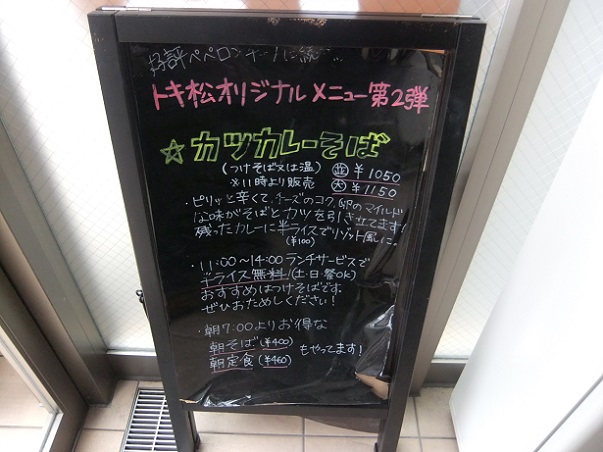 好評ペペロンチーノに続く…
トキ松オリジナルメニュー第2弾
☆カツカレーそば
(つけそば又は温) 並 ¥1050
※11時より販売 大 ¥1150
・ピリッと辛くて、チーズのコク、卵のマイルド
な味がそばとカツを引き立てます!
残ったカレーに半ライスでリゾット風に。
(¥100)
・11:00〜14:00ランチサービスで
半ライス無料!(土・日・祭OK)
おすすめはつけそばです。
ぜひおためしください!
・朝7:00よりお得な
朝そば(¥400)
朝定食(¥460) もやってます!